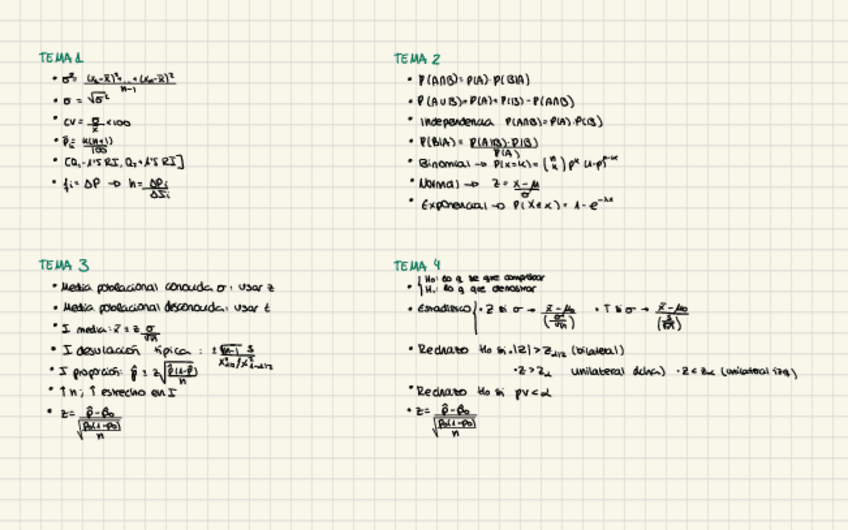 TEMA 1
• σ² = (x₁-x̄)²+...+(xₙ-x̄)² / n-1
• σ = √σ²
• CV = σ/x̄ ×100
• Pₖ = k(n+1)/100
• [Q₁-1'5 RI, Q₃+1'5 RI]
• fi = ΔP → h = ΔPi/ΔSi
TEMA 2
• P(A∩B) = P(A)·P(B|A)
• P(A∪B) = P(A)+P(B)-P(A∩B)
• Independencia P(A∩B) = P(A)·P(B)
• P(B|A) = P(A|B)·P(B) / P(A)
• Binomial → P(X=k) = (n k) pᵏ (1-p)ⁿ⁻ᵏ
• Normal → z = x-μ / σ
• Exponencial → P(X≤x) = 1-e^-λx
TEMA 3
• Media poblacional conocida σ: usar z
• Media poblacional desconocida: usar t
• I media: x̄ ± z σ/√n
• I desviación típica :
• I proporción: p̂ ± z √(p̂(1-p̂)/n)
• ↑n; ↑ estrecho en I
• z = p̂-p₀ / √(p₀(1-p₀)/n)
TEMA 4
• { H₀: lo q se que comprobar
H₁: lo q que demostrar
• Estadístico { • Z si σ → x̄-μ₀ / (σ/√n) • T si σ → x̄-μ₀ / (s/√n)
• Rechazo H₀ si •|z| > z α/2 (bilateral)
• z > zα unilateral dcha) • z < zα (unilateral izq)
• Rechazo H₀ si pv < α
• z = p̂-p₀ / √(p₀(1-p₀)/n)